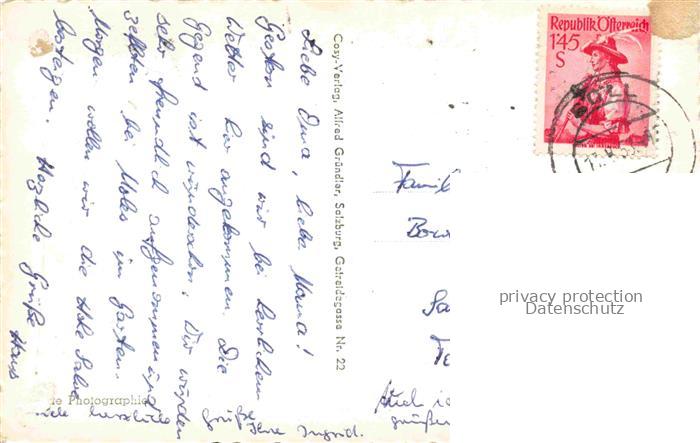 Liebe Oma, liebe Mama!
Gestern sind wir bei herrlichem
Wetter hier angekommen. Die
Gegend ist wunderschön. Wir wurden
sehr freundlich aufgenommen und
zelten bei Moles im Garten.
Morgen wollen wir die Hohe Salve
besteigen. Herzliche Grüße
Hans
viele herzliche Grüße
Ingrid.
Cosy-Verlag, Alfred Gründler, Salzburg, Getreidegasse Nr. 22
te Photographie
Republik Österreich
1·45
S
SÖLL
Famil
Bow
Sa
Auch ic
grüßen
privacy protection
Datenschutz